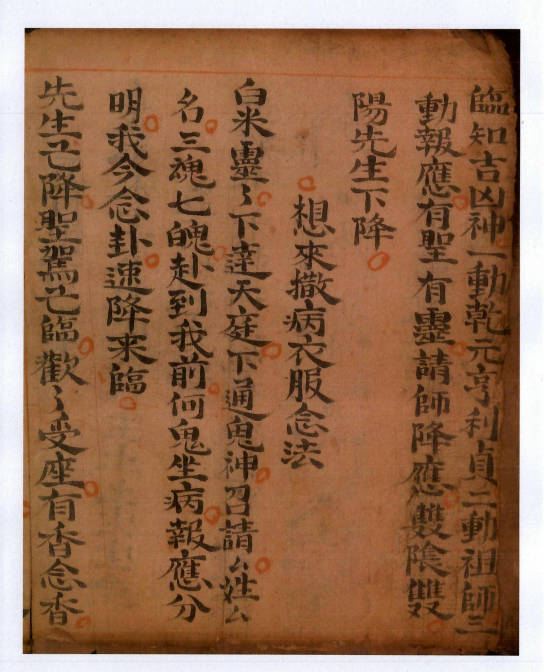 臨知吉凶神一動乾元亨利貞二動祖師三
動報應有聖有靈請師降應雙陰雙
陽先生下降
想來撒病衣服念法
白米靈〻下達天庭下通鬼神召請厶姓厶
名三魂七魄赴到我前何鬼坐病報應分
明我今念卦速降来臨
先生已降聖駕已臨歡〻受座有香念香